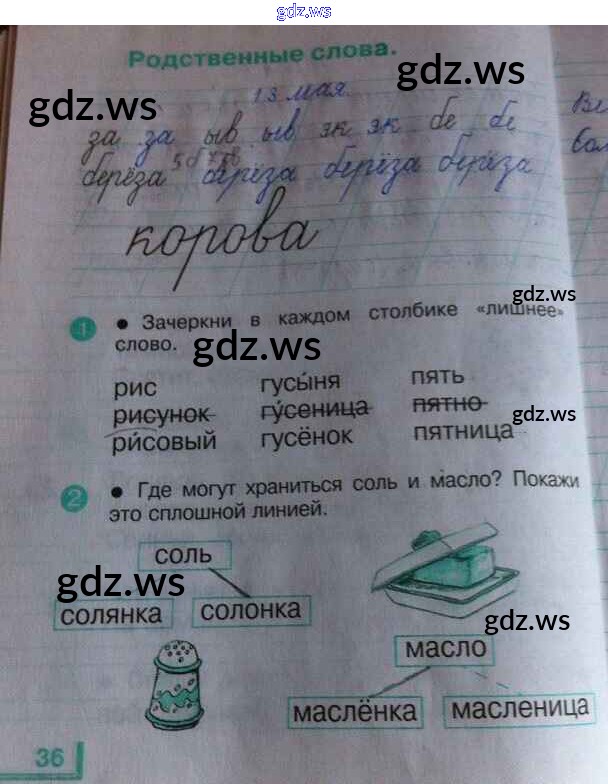 gdz.ws
Родственные слова.
gdz.ws
gdz.ws
13 мая
за за ыв ыв зк зк бе бе
берёза берёза берёза берёза
корова
gdz.ws
1 • Зачеркни в каждом столбике «лишнее»
слово.
gdz.ws
рис гусы́ня пять
рисунок гу́сеница пятно
ри́совый гусёнок пятница
gdz.ws
2 • Где могут храниться соль и масло? Покажи
это сплошной линией.
соль
gdz.ws
солянка солонка
gdz.ws
масло
маслёнка масленица
36
gdz.ws